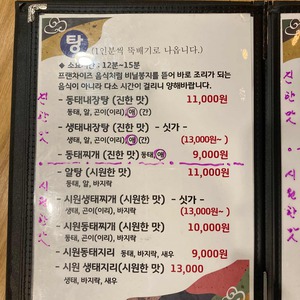 탕 (1인분씩 뚝배기로 나옵니다.)
◆ 소요시간 : 12분~15분
프랜차이즈 음식처럼 비닐봉지를 뜯어 바로 조리가 되는
음식이 아니라 다소 시간이 걸리니 양해바랍니다.
- 동태내장탕 (진한 맛) 11,000원
동태, 알, 곤이(이리), 애 (간)
- 생태내장탕 (진한 맛) - 싯가 -
생태, 알, 곤이(이리), 애 (간) (13,000원~ )
- 동태찌개 (진한 맛) 동태 애 9,000원
- 알탕 (시원한 맛) 11,000원
동태, 알, 바지락
- 시원생태찌개 (시원한 맛) - 싯가 -
생태, 곤이(이리), 바지락 (13,000원~ )
- 시원동태찌개 (시원한 맛) 10,000원
동태, 곤이(이리), 바지락
- 시원동태지리 동태, 바지락, 새우 9,000원
- 시원 생태지리(시원한 맛) 13,000
생태, 바지락, 새우